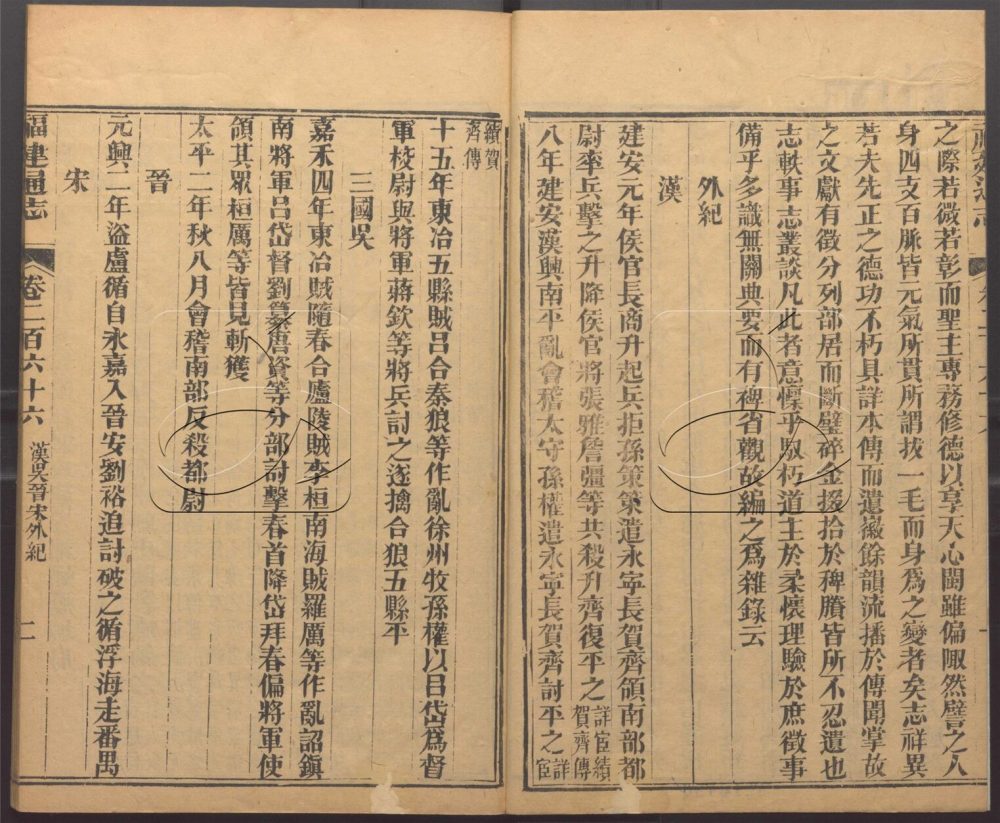 之際若微若彰而聖主專務修德以享天心閩雖偏陬然譬之人
身四支百脈皆元氣所貫所謂拔一毛而身爲之變者矣志祥異
若夫先正之德功不朽具詳本傳而遺徽餘韻流播於傳聞掌故
之文獻有徵分列部居而斷璧碎金掇拾於稗牘皆所不忍遺也
志軼事志叢談凡此者意懍乎馭朽道主於柔懷理驗於庶徵事
備乎多識無關典要而有裨省觀故編之爲雜錄云
外紀
漢
建安元年侯官長商升起兵拒孫策策遣永寧長賀齊領南部都
尉率兵擊之升降侯官將張雅詹彊等共殺升齊復平之詳宦績賀齊傳
八年建安漢興南平亂會稽太守孫權遣永寧長賀齊討平之詳宦
績賀齊傳
十五年東冶五縣賊呂合秦狼等作亂徐州牧孫權以呂岱爲督
軍校尉與將軍蔣欽等將兵討之遂擒合狼五縣平
三國吳
嘉禾四年東冶賊隨春合廬陵賊李桓南海賊羅厲等作亂詔鎭
南將軍呂岱督劉纂唐資等分部討擊春首降岱拜春偏將軍使
領其眾桓厲等皆見斬獲
太平二年秋八月會稽南部反殺都尉
晉
元興二年盜盧循自永嘉入晉安劉裕追討破之循浮海走番禺
宋
福建通志
卷二百六十六
漢吳晉宋外紀
二